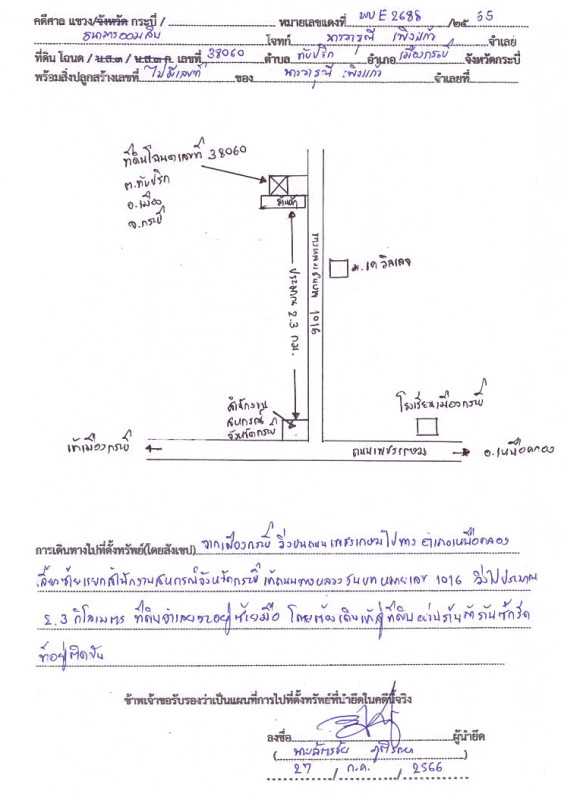 คดีศาล แขวง/จังหวัด กระบี่ / หมายเลขแดงที่ ผบ E 2688 /๒๕ 65
ธนาคารออมสิน โจทก์ นางจารุณี เพิงแก้ว จำเลย
ที่ดิน โฉนด / น.ส.๓ / น.ส.๓ ก. เลขที่ 38060 ตำบล ทับปริก อำเภอ เมืองกระบี่ จังหวัดกระบี่
พร้อมสิ่งปลูกสร้างเลขที่ ไม่มีเลขที่ ของ นางจารุณี เพิงแก้ว จำเลยที่
ที่ดินโฉนดเลขที่ 38060
ต.ทับปริก
อ.เมือง
จ.กระบี่
ทางหลวงชนบท 1016
ประมาณ 2.3 กม.
สำนักงาน
สหกรณ์
จังหวัดกระบี่
โรงเรียนเมืองกระบี่
เข้าเมืองกระบี่
ถนนเพชรเกษม
อ.เหนือคลอง
การเดินทางไปที่ตั้งทรัพย์(โดยสังเขป) จากเมืองกระบี่ วิ่งบนถนนเพชรเกษมไปทาง อำเภอเหนือคลอง
เลี้ยวซ้ายแยกสำนักงานสหกรณ์จังหวัดกระบี่ เข้าถนนทางหลวงชนบทหมายเลข 1016 วิ่งไปประมาณ
2.3 กิโลเมตร ที่ดินจำเลยจะอยู่ซ้ายมือ โดยต้องเดินเข้าสู่ที่ดินผ่านร้านค้าร้านซักรีด
ที่อยู่ติดกัน
ข้าพเจ้าขอรับรองว่าเป็นแผนที่การไปที่ตั้งทรัพย์ที่นำยึดในคดีนี้จริง
ลงชื่อ ผู้นำยึด
27 / ก.ค. / 2566